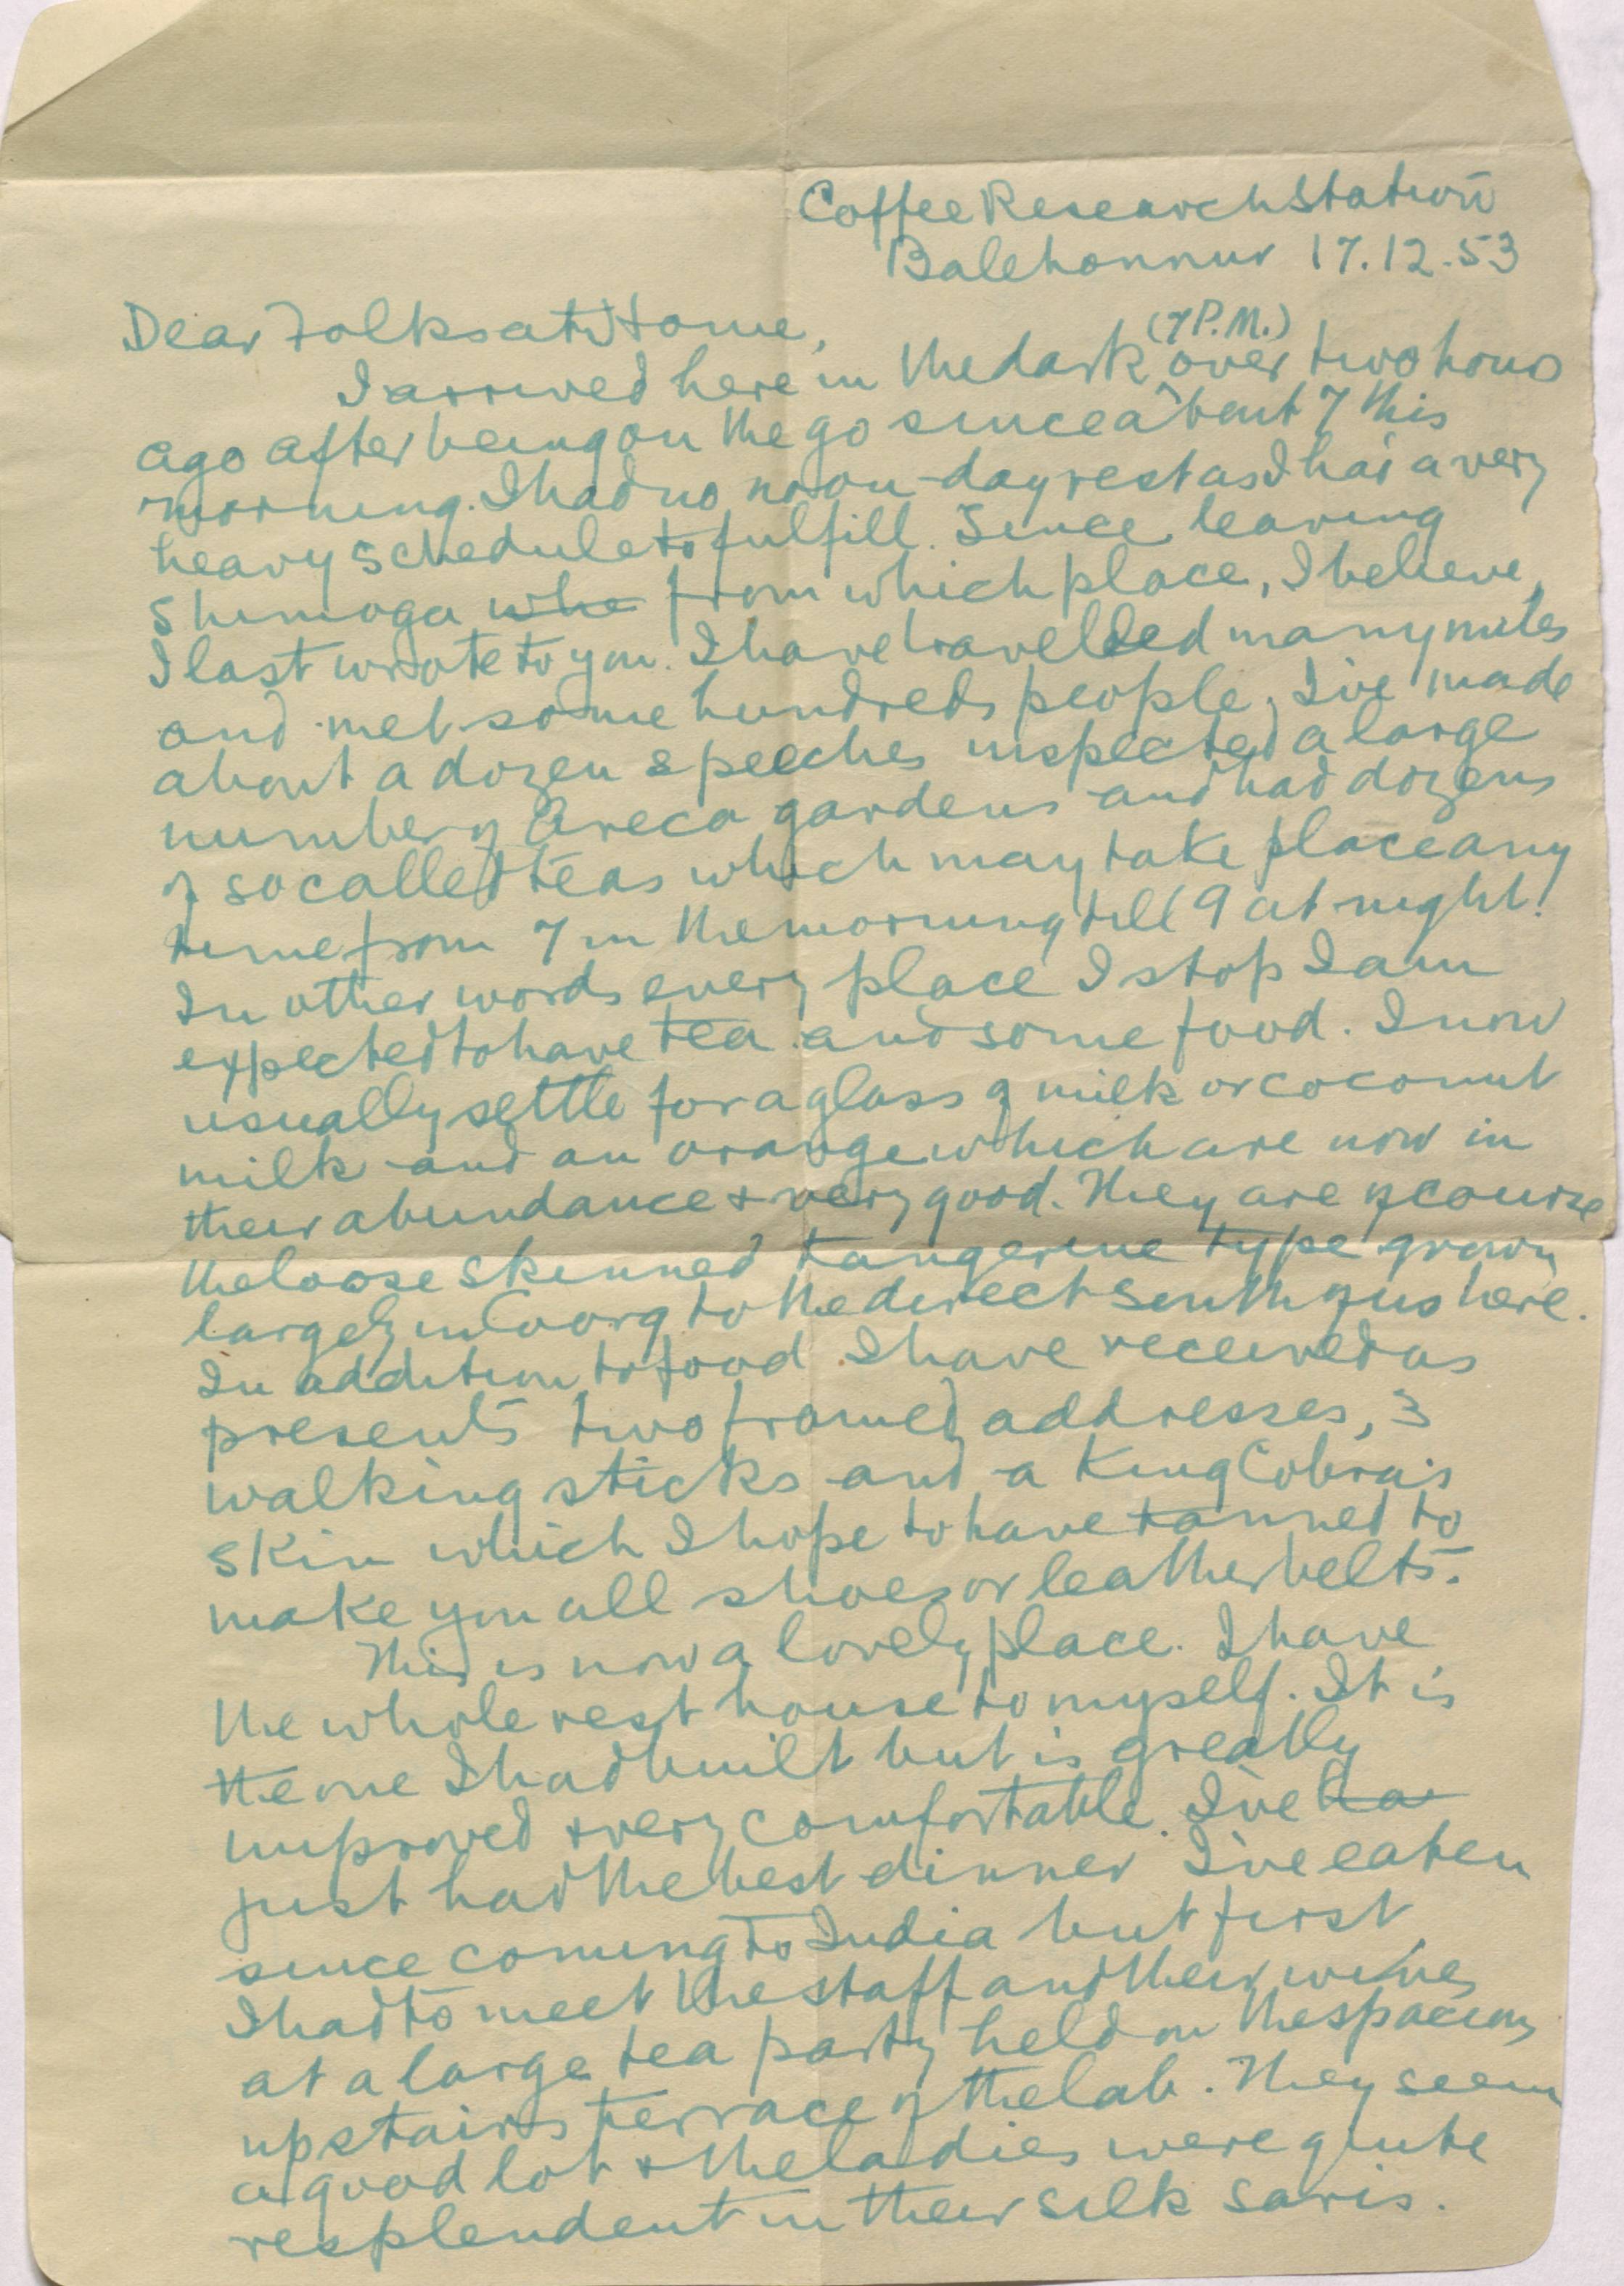 Coffee Research Station
Balehonnur 17.12.53
Dear Folks at Home,
(7 P.M.)
I arrived here in the dark over two hours
ago after being on the go since about 7 this
morning. I had no noon-day rest as I had a very
heavy schedule to fulfill. Since leaving
Shimoga whe from which place, I believe,
I last wrote to you. I have travelled many miles
and met some hundreds people, I've made
about a dozen speeches inspected a large
number of Areca gardens and had dozens
of so called teas which may take place any
time from 7 in the morning till 9 at night!
In other words every place I stop I am
expected to have tea and some food. I now
usually settle for a glass of milk or coconut
milk and an orange which are now in
their abundance & very good. They are of course
the loose skinned tangerine type grown
largely in Coorg to the direct south of us here.
In addition to food I have received as
presents two framed addresses, 3
walking sticks and a King Cobra's
skin which I hope to have tanned to
make you all shoes or leather belts.
This is now a lovely place. I have
the whole rest house to myself. It is
the one I had built but is greatly
improved & very comfortable. I've ha
just had the best dinner I've eaten
since coming to India but first
I had to meet the staff and their wives
at a large tea party held on the spacious
upstairs terrace of the lab. They seem
a good lot & the ladies were quite
resplendent in their silk saris.